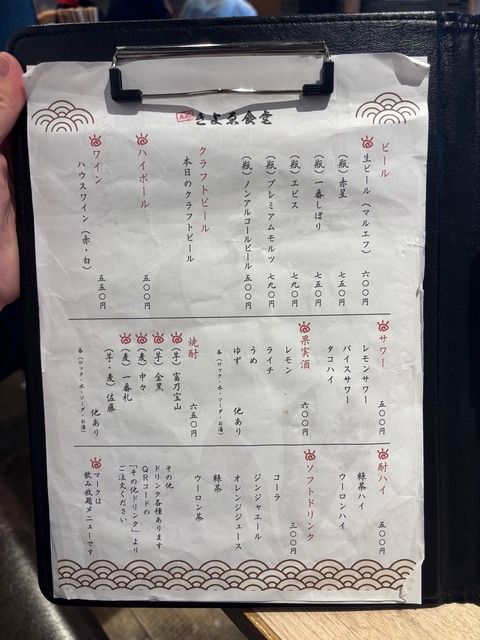 きよゑ食堂
ビール
生ビール(マルエフ) 六〇〇円
(瓶)赤星 七五〇円
(瓶)一番しぼり 七五〇円
(瓶)エビス 七九〇円
(瓶)プレミアムモルツ 七九〇円
(瓶)ノンアルコールビール 五〇〇円
クラフトビール
本日のクラフトビール
ハイボール 五〇〇円
ワイン
ハウスワイン(赤・白) 五五〇円
サワー 五〇〇円
レモンサワー
バイスサワー
タコハイ
果実酒 六〇〇円
レモン
ライチ
うめ
ゆず 他あり
各(ロック・水・ソーダ・お湯)
焼酎 六五〇円
(芋)富乃宝山
(芋)金黒
(麦)中々
(麦)一番札
(芋・麦)佐藤 他あり
各(ロック・水・ソーダ・お湯)
酎ハイ 五〇〇円
緑茶ハイ
ウーロンハイ
ソフトドリンク 三〇〇円
コーラ
ジンジャエール
オレンジジュース
緑茶
ウーロン茶
その他
ドリンク各種あります
QRコードの
「その他ドリンク」より
ご注文ください
マークは
飲み放題メニューです